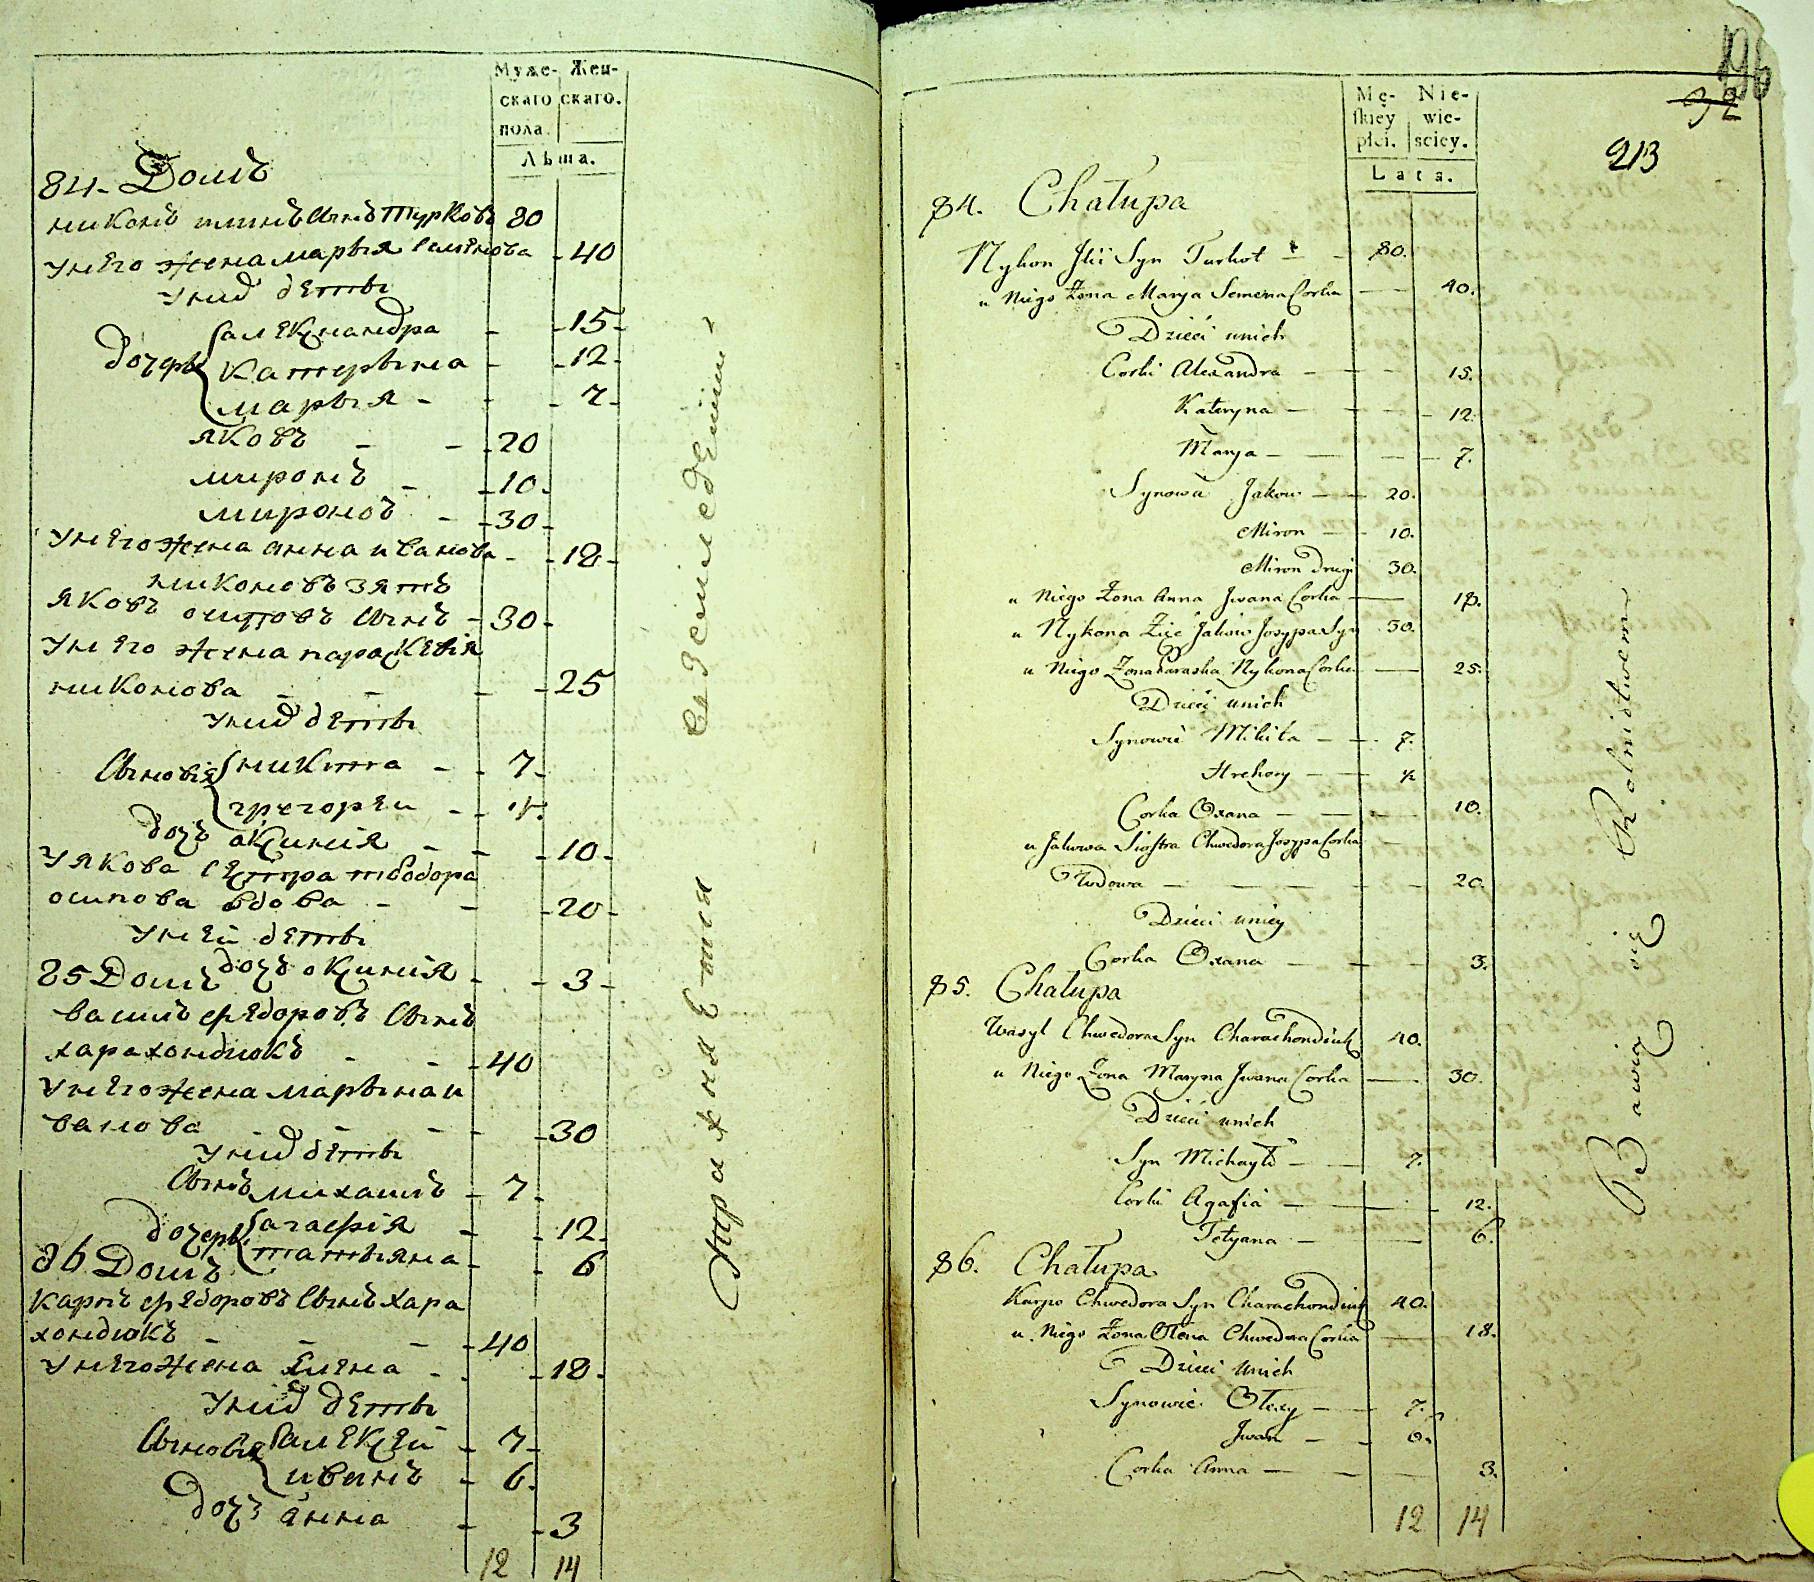 Муже- Жен-
скаго скаго.
пола.
Лѣта.
84. Домъ
никонъ илинъ сынъ Турковъ 80
унего жена марья Семенова - 40
уних дети
дочери александра - - 15 -
катерына - - 12 -
марья - - - 7 -
яковъ - - 20
миронъ - - 10 -
мироновъ - - 30 -
унего жена анна иванова - - 18 -
никоновъ зять
яковъ осиповъ сынъ - 30 -
унего жена параскевія
никонова - - - - 25
уних дети
Сыновія никита - - 7 -
григорей - -
дочъ оксинія - - - 10 -
уякова сестра
осипова вдова - - - 20 -
уней дети
дочъ оксинія - - 3 -
85 Домъ
василь федоровъ сынъ
харахондюкъ - - - 40
унего жена марьина и
ванова - - - - 30
уних дети
Сынъ михаилъ - 7 -
дочери агафія - - 12 -
татьяна - - 6
86 Домъ
карпъ федоровъ сынъ хара
хондюкъ - - - - 40
унего жена елена - - - 18 -
уних дети
Сыновія алексей - 7 -
иванъ - 6 -
дочъ анна - - 3
12 14
196
92
213
Mę- Nie-
ſkiey wie-
płci. sciey.
Lata.
84. Chałupa
Nykon Jlii Syn Turkot - - 80.
u Niego Żona Marya Semena Corka - 40.
Dzieci unich
Corki Alexandra - - - 15.
Kateryna - - - - 12.
Marya - - - - 7.
Synowie Jakow - - 20.
Miron - - 10.
Miron drugi 30.
u Niego Żona Anna Jwana Corka - 18.
u Nykona Zięć Jakow Josypa Syn 30.
u Niego Żona Paraska Nykona Corka - 25.
Dzieci unich
Synowie Mikita - - 7.
Hrehory - -
Corka Oxana - - - 10.
u Jakowa Siostra Chwedora Josypa Corka -
Wdowa - - - - - 20.
Dzieci uniey
Corka Oxana - - - 3.
85. Chałupa
Wasyl Chwedora Syn Charachondiuk 40.
u Niego Żona Maryna Jwana Corka - 30.
Dzieci unich
Syn Michayło - - 7.
Corki Agafia - - - 12.
Tetyana - - 6.
86. Chałupa
Karpo Chwedora Syn Charachondiuk 40.
u Niego Żona Olena Chwedora Corka - 18.
Dzieci unich
Synowie Olexy - - 7.
Jwan - - 6.
Corka Anna - - - 3.
12 14
Bawią się Rolnictwem